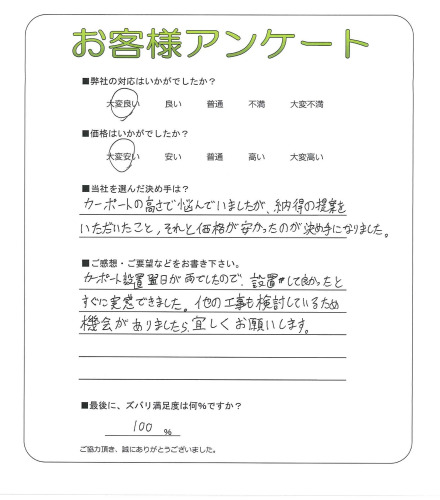 お客様アンケート
■弊社の対応はいかがでしたか？
大変良い　良い　普通　不満　大変不満
■価格はいかがでしたか？
大変安い　安い　普通　高い　大変高い
■当社を選んだ決め手は？
カーポートの高さで悩んでいましたが、納得の提案を
いただいたこと、それと価格が安かったのが決め手になりました。
■ご感想・ご要望などをお書き下さい。
カーポート設置翌日が雨でしたので、設置して良かったと
すぐに実感できました。他の工事も検討しているため
機会がありましたら、宜しくお願いします。
■最後に、ズバリ満足度は何％ですか？
100 ％
ご協力頂き、誠にありがとうございました。